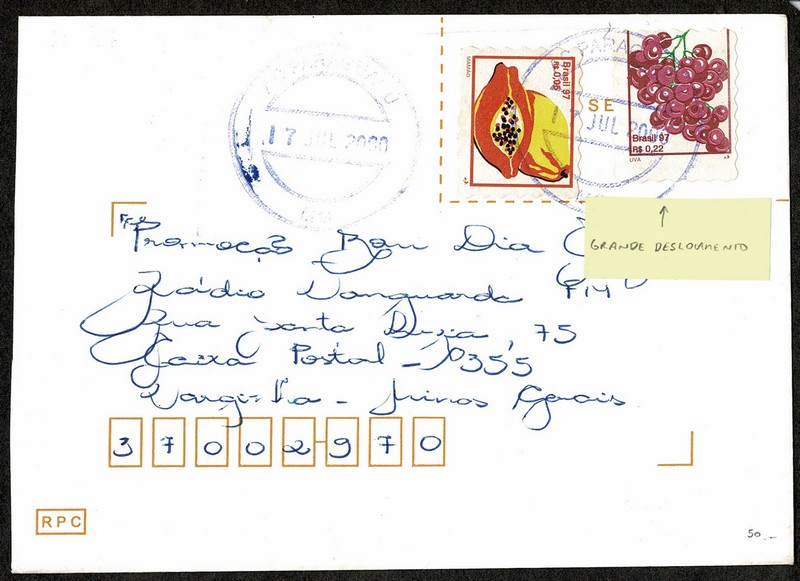 PARAGUAÇU
17 JUL 2000
MG
MAMÃO
Brasil 97
R$ 0,05
SE
PARAG
JUL 2000
Brasil 97
R$ 0,22
UVA
GRANDE DESLOCAMENTO
Promoção Bom Dia
Rádio Vanguarda FM
Rua Santa Luzia, 75
Caixa Postal - 355
Varginha - Minas Gerais
37002-970
RPC
50.-